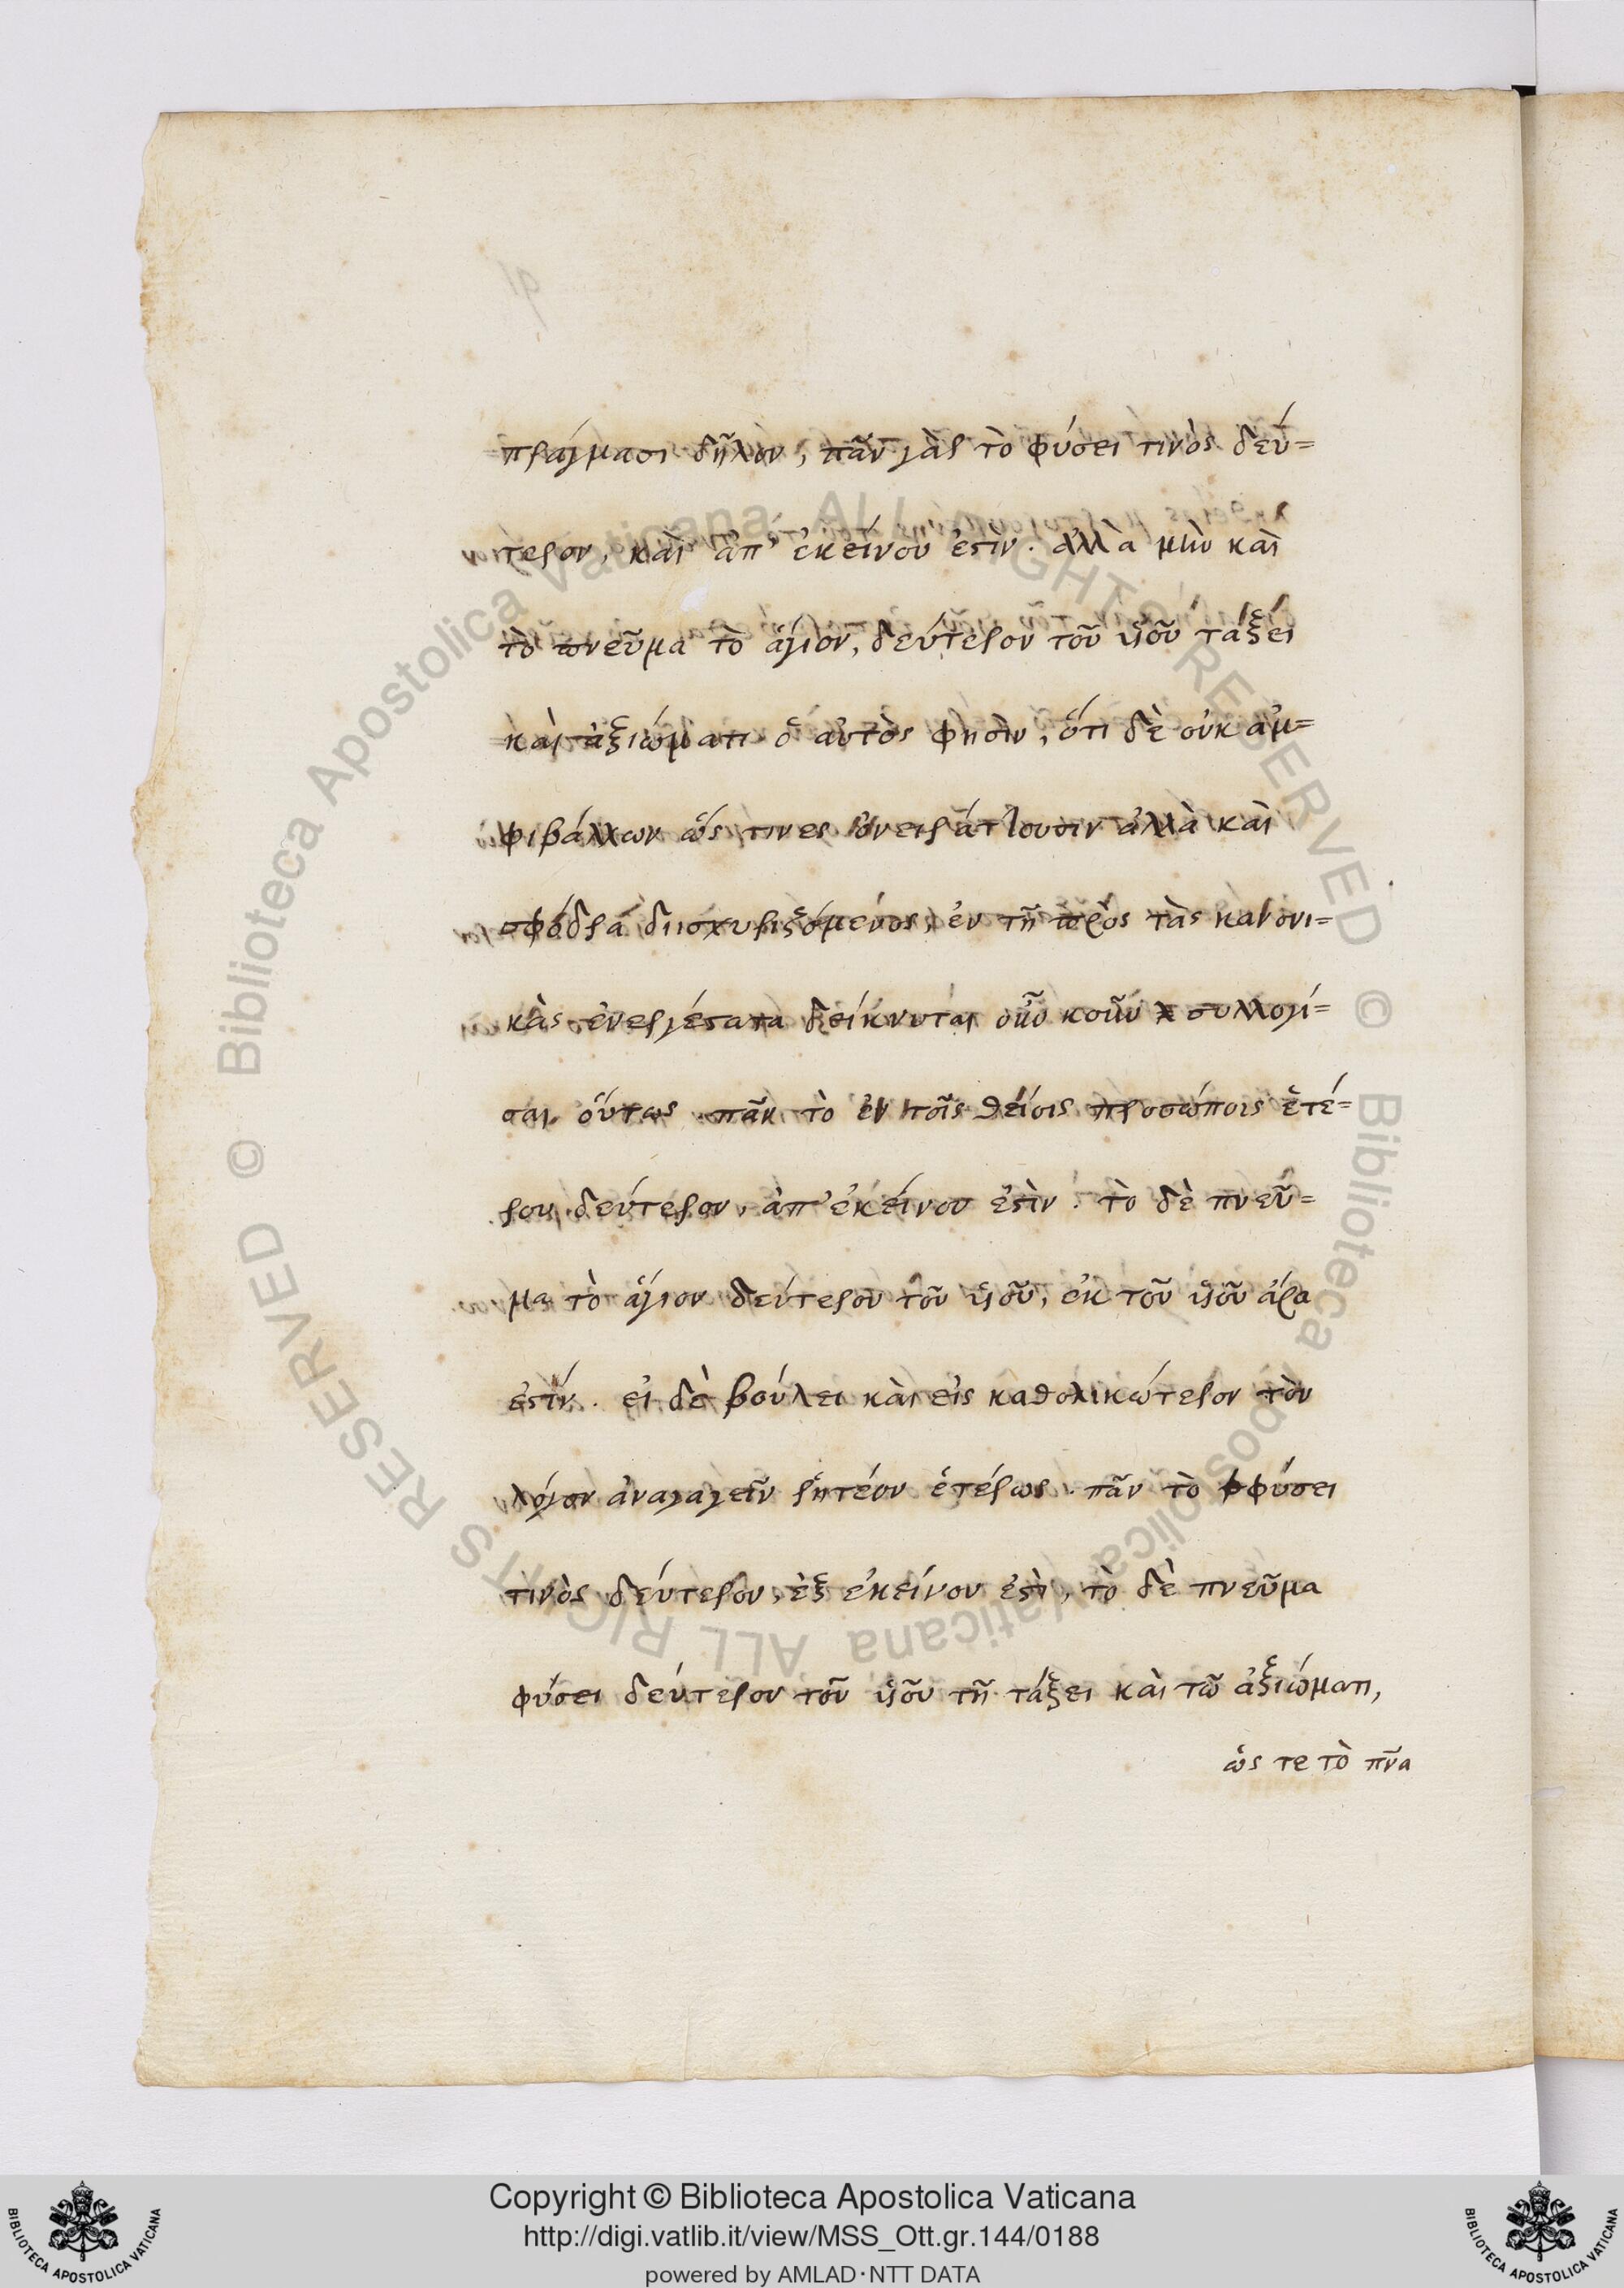 πράγμασι δῆλον, πᾶν γὰρ τὸ φύσει τινὸς δεύ=
τερον, καὶ ἀπ' ἐκείνου ἐστὶν. ἀλλὰ μὴν καὶ
τὸ πνεῦμα τὸ ἅγιον, δεύτερον τοῦ υἱοῦ τάξει
καὶ ἀξιώματι ὁ αὐτὸς φησὶν, ὅτι δὲ οὐκ ἀμ=
φιβάλλων ὥς τινες ὀνειράττουσιν ἀλλὰ καὶ
σφόδρα διισχυριζόμενος, ἐν τῇ πρὸς τὰς κανονι=
κὰς δείκνυται οὖν κοῦν συλλογί=
σαι οὕτως πᾶν τὸ ἐν τοῖς θείοις προσώποις ἑτέ=
ρου δεύτερον, ἀπ' ἐκείνου ἐστὶν. τὸ δὲ πνεῦ=
μα τὸ ἅγιον δεύτερον τοῦ υἱοῦ, ἐκ τοῦ υἱοῦ ἄρα
ἐστίν. εἰ δὲ βούλει καὶ εἰς καθολικώτερον τὸν
λόγον ἀναγαγεῖν ῥητέον ἑτέρως. πᾶν τὸ φύσει
τινὸς δεύτερον, ἐξ ἐκείνου ἐστὶ, τὸ δὲ πνεῦμα
φύσει δεύτερον τοῦ υἱοῦ τῇ τάξει καὶ τῷ ἀξιώματι,
ὥς τε τὸ πν̅α
© Biblioteca Apostolica Vaticana ALL RIGHTS RESERVED © Biblioteca Apostolica Vaticana ALL RIGHTS RESERVED
Copyright © Biblioteca Apostolica Vaticana
http://digi.vatlib.it/view/MSS_Ott.gr.144/0188
powered by AMLAD·NTT DATA
BIBLIOTECA APOSTOLICA VATICANA
BIBLIOTECA APOSTOLICA VATICANA